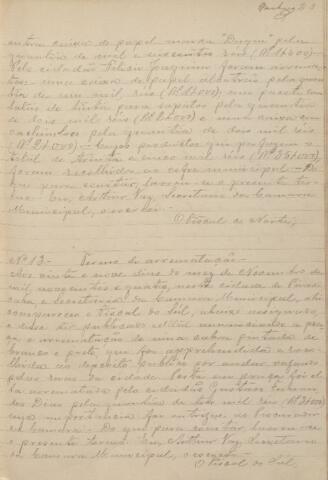 outra caixa de papel marca "Duque" pela
quantia de mil e seiscentos réis (Rs. 1$600)
Pelo cidadão João Joaquim foram arrema-
tados: uma caixa de papel pela quan-
tia de um mil réis (Rs. 1$000), um pacote com
latas de tinta para sapatos pela quantia
de dois mil réis (Rs. 2$000) e uma caixa com
pela quantia de dois mil réis
(Rs. 2$000) — cujos productos que perfazem o
total de trinta e cinco mil réis (Rs. 35$000)
foram recolhidos ao cofre municipal. — Do
que para constar, lavrou-se o presente ter-
mo. Eu, Arthur Vaz, Secretario da Camara
Municipal, o escrevi.
O Fiscal do Norte,
Nº 13 - Termo de arrematação -
Aos vinte e nove dias do mez de Novembro de
mil novecentos e quatro, nesta cidade de Pira-
cicaba, e Secretaria da Camara Municipal, ahi
compareceu o Fiscal do Sul, abaixo assignado,
e disse ter publicado edital annunciando a pra-
ça e arrematação de uma cabra pintada de
branco e preto, que foi apprehendida e reco-
lhida ao deposito publico por andar vagando
pelas ruas da cidade. Posta em praça foi el-
la arrematada pelo cidadão Gustavo
pela quantia de tres mil réis (Rs. 3$000)
cuja importancia foi entregue ao Procurador
da Camara. Do que para constar lavrou-se
o presente termo. Eu, Arthur Vaz, Secretario
da Camara Municipal, o escrevi.
O Fiscal do Sul,